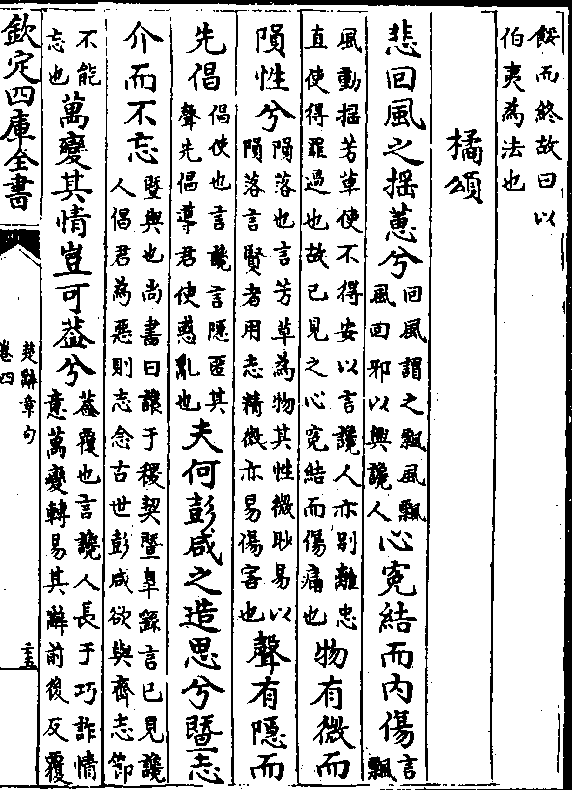 餒而終故曰以
伯夷為法也
橘頌
悲回風之揺蕙兮回風謂之飄風飄
風回邪以興讒人心寃結而内傷言飄
風動揺芳草使不得安以言讒人亦别離忠
直使得罪過也故已見之心寃結而傷痛也物有微而
隕性兮隕落也言芳草為物其性微眇易以
隕落言賢者用志精微亦易傷害也聲有隠而
先倡倡使也言讒言隠匿其
聲先倡導君使惑亂也夫何彭咸之造思兮暨志
介而不忘暨與也尚書曰讓于稷契暨臯繇言已見讒
人倡君為惡則志念古世彭咸欲與齊志節
不能
忘也萬變其情豈可葢兮葢覆也言讒人長于巧詐情
意萬變轉易其辭前後反覆
欽定四庫全書
楚辭章句
卷四